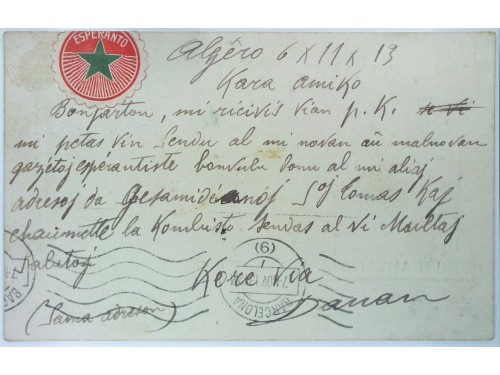 ESPERANTO
Algêro 6 X 11 X 13
Kara amiko
Bonfarton, mi ricivis vian p. K.
mi petas vin Sendu al mi novan aŭ malnovan
gazetoj esperantiste bonvulu donu al mi aliaj
adresoj da Gesamideanoj Soj Comas Kaj
chaumette la Kombisto Sendas al Vi Maultaj
Salutoj
Kore Via
(Sama adreson)
BARCELONA
(9)
NOV